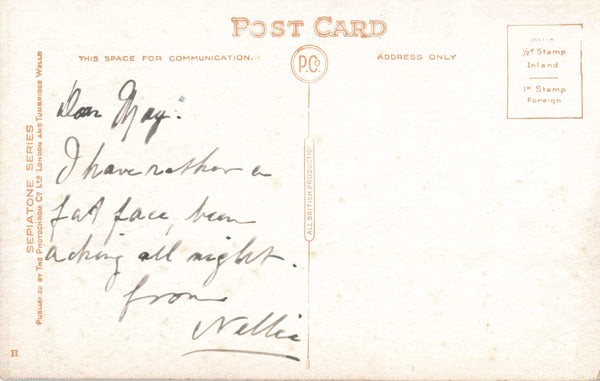 POST CARD
THIS SPACE FOR COMMUNICATION.
ADDRESS ONLY
P.Co.
½d Stamp
Inland
1d Stamp
Foreign
SEPIATONE SERIES
PUBLISHED BY THE PHOTOCHROM CO LTD LONDON AND TUNBRIDGE WELLS
ALL BRITISH PRODUCTION
Dear May.
I have rather a
fat face, been
aching all night.
from
Nellie
H